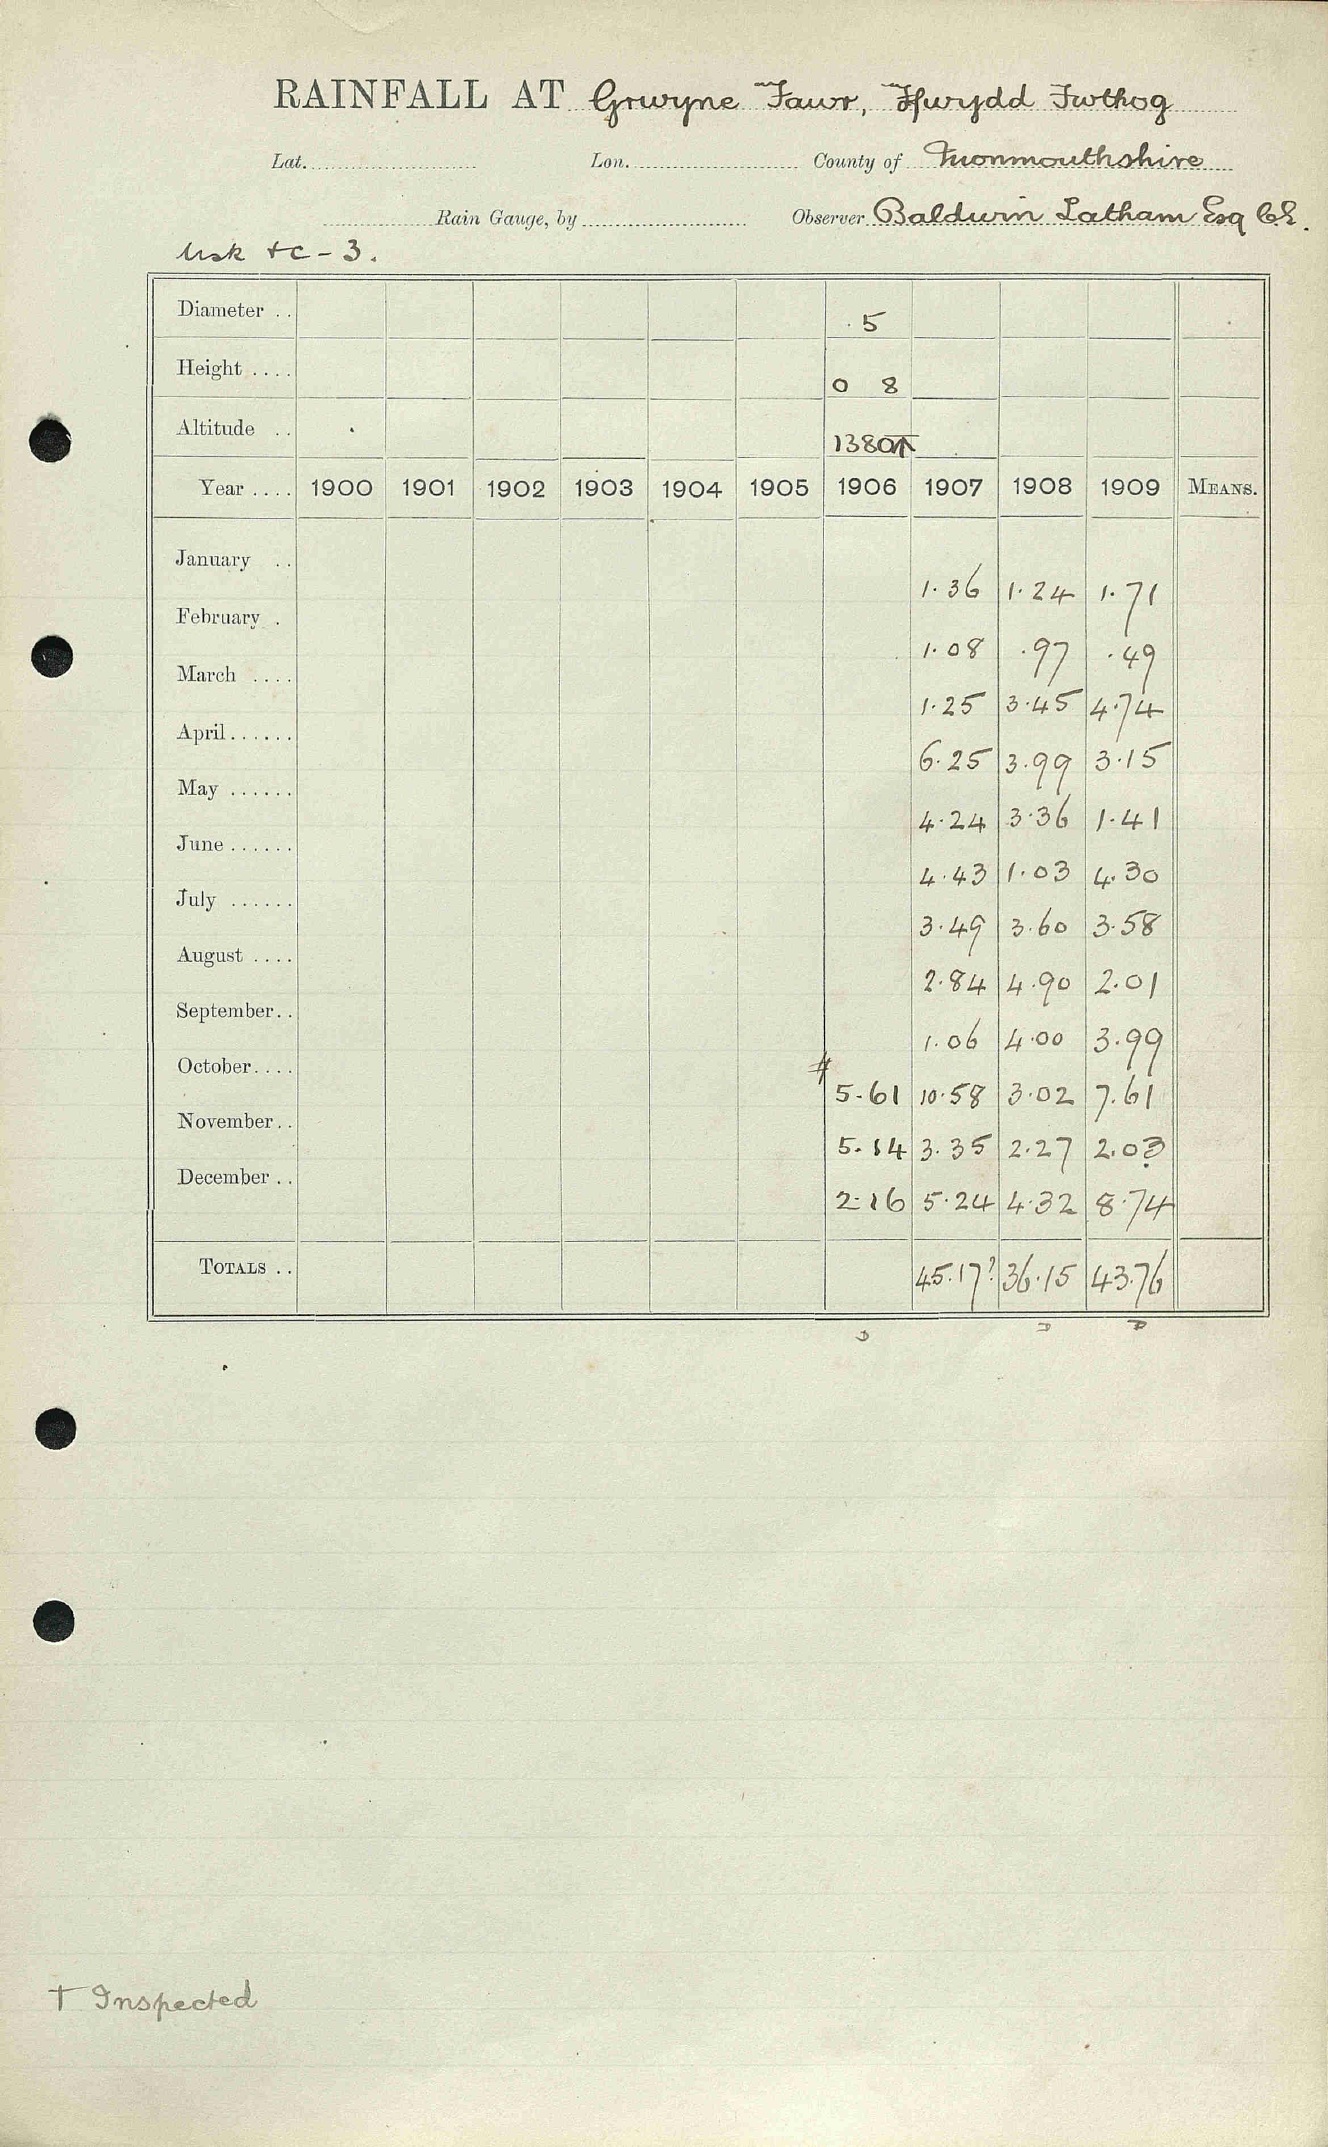 RAINFALL AT Grwyne Fawr, Ffwrydd Fwthog
Lat. Lon. County of Monmouthshire
Rain Gauge, by Observer Baldwin Latham Esq C.E.
Usk +c - 3.
Diameter .. 5
Height .... 0 8
Altitude .. 1380
Year .... 1900 1901 1902 1903 1904 1905 1906 1907 1908 1909 MEANS.
January .. 1.36 1.24 1.71
February . 1.08 .97 .49
March .... 1.25 3.45 4.74
April...... 6.25 3.99 3.15
May ...... 4.24 3.36 1.41
June ...... 4.43 1.03 4.30
July ...... 3.49 3.60 3.58
August .... 2.84 4.90 2.01
September.. 1.06 4.00 3.99
October.... 5.61 10.58 3.02 7.61
November.. 5.14 3.35 2.27 2.03
December .. 2.16 5.24 4.32 8.74
TOTALS .. 45.17? 36.15 43.76
D D D
† Inspected